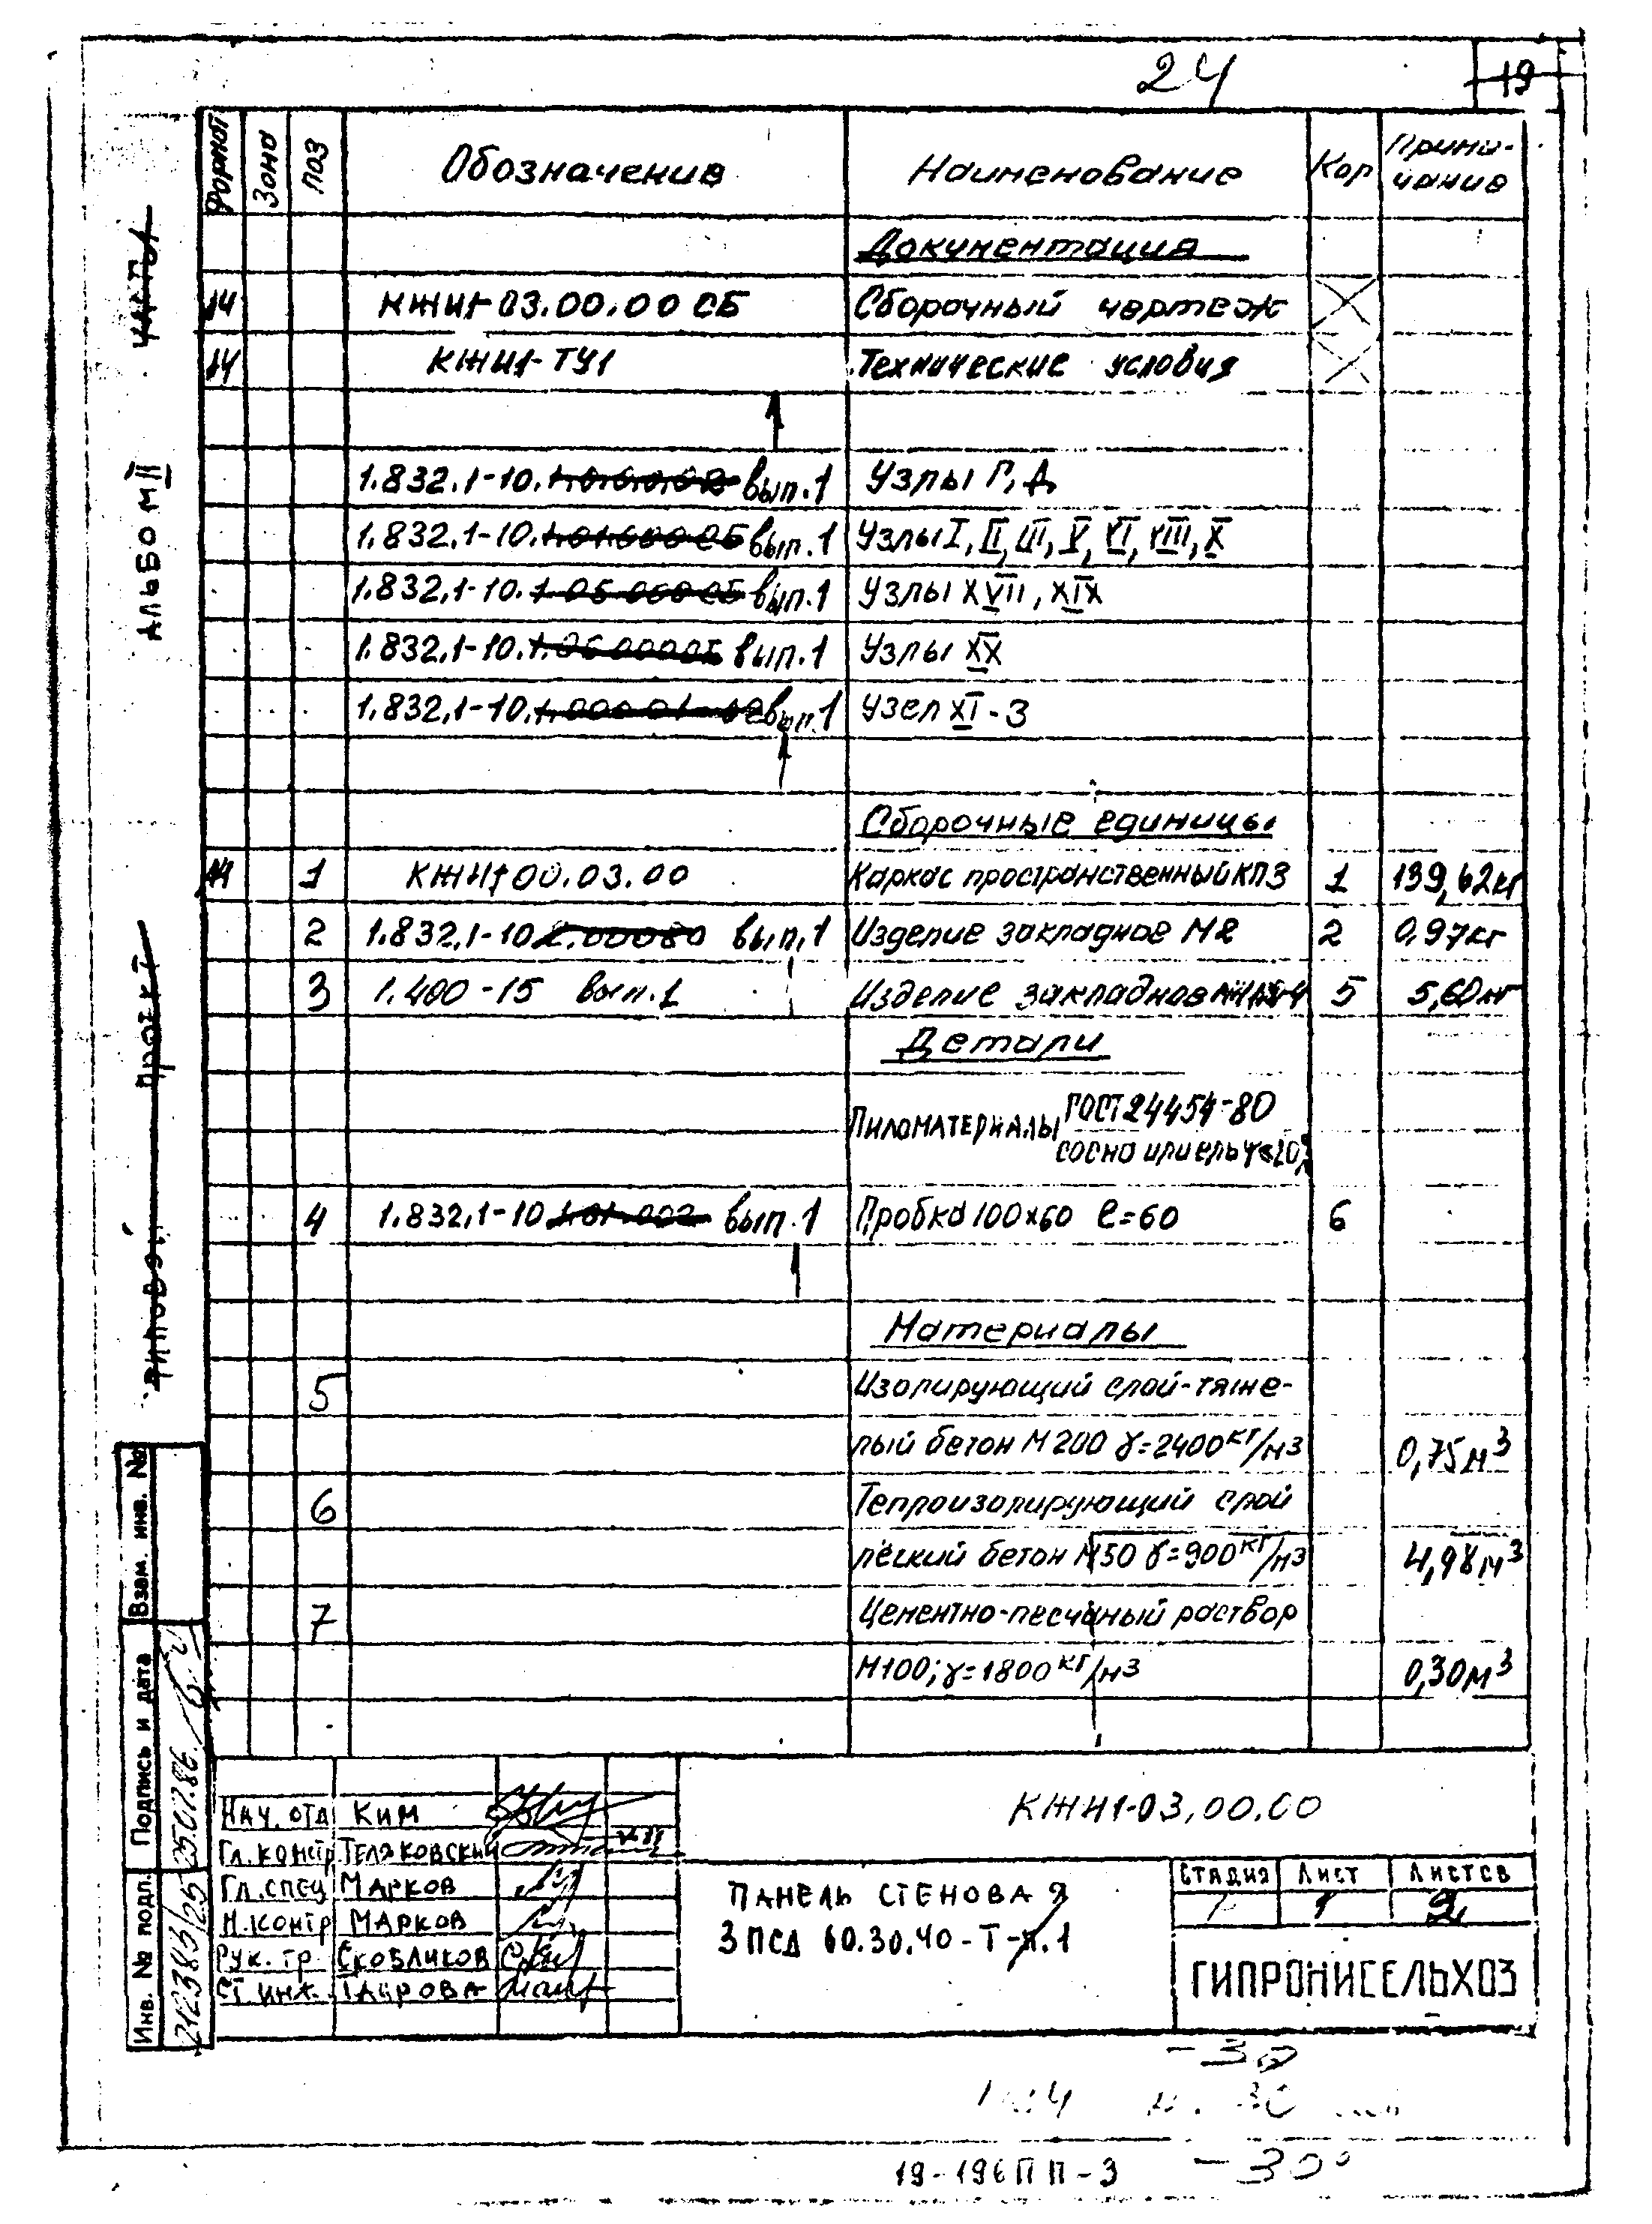 24
19
Формат Зона Поз Обозначение Наименование Кол Приме-
чание
Документация
14 КЖИ1-03.00.00 СБ Сборочный чертеж
14 КЖИ1-ТУ1 Технические условия
1.832.1-10. вып.1 Узлы Г, Д
1.832.1-10. вып.1 Узлы I, II, III, V, VI, VIII, X
1.832.1-10. вып.1 Узлы XVII, XIX
1.832.1-10. вып.1 Узлы XX
1.832.1-10. вып.1 Узел XI-3
Сборочные единицы
1 КЖИ1 00.03.00 Каркас пространственный КП3 1 139,62кг
2 1.832.1-10 вып.1 Изделие закладное М2 2 0,97кг
3 1.400-15 вып.1 Изделие закладное 5 5,60кг
Детали
Пиломатериалы ГОСТ 24454-80
сосна или ель
4 1.832.1-10 вып.1 Пробка 100х60 ℓ=60 6
Материалы
5 Изолирующий слой-тяже-
лый бетон М200 γ=2400кг/м3 0,75м3
6 Теплоизолирующий слой
лёгкий бетон М50 γ=900кг/м3 4,98м3
7 Цементно-песчаный раствор
М100; γ=1800кг/м3 0,30м3
Альбом II
Типовой проект
Взам. инв. №
Подпись и дата
25.07.86
Инв. № подл.
212383/25
Нач. отд Ким
Гл. констр. Теляковский
Гл. спец Марков
Н. контр Марков
Рук. гр. Скобликов
Ст. инж. Таирова
КЖИ1-03.00.00
Панель стеновая
3ПСД 60.30.40-Т-п.1
Стадия Лист Листов
Р 1 2
ГИПРОНИСЕЛЬХОЗ
-30
19-196ПП-3 -30°